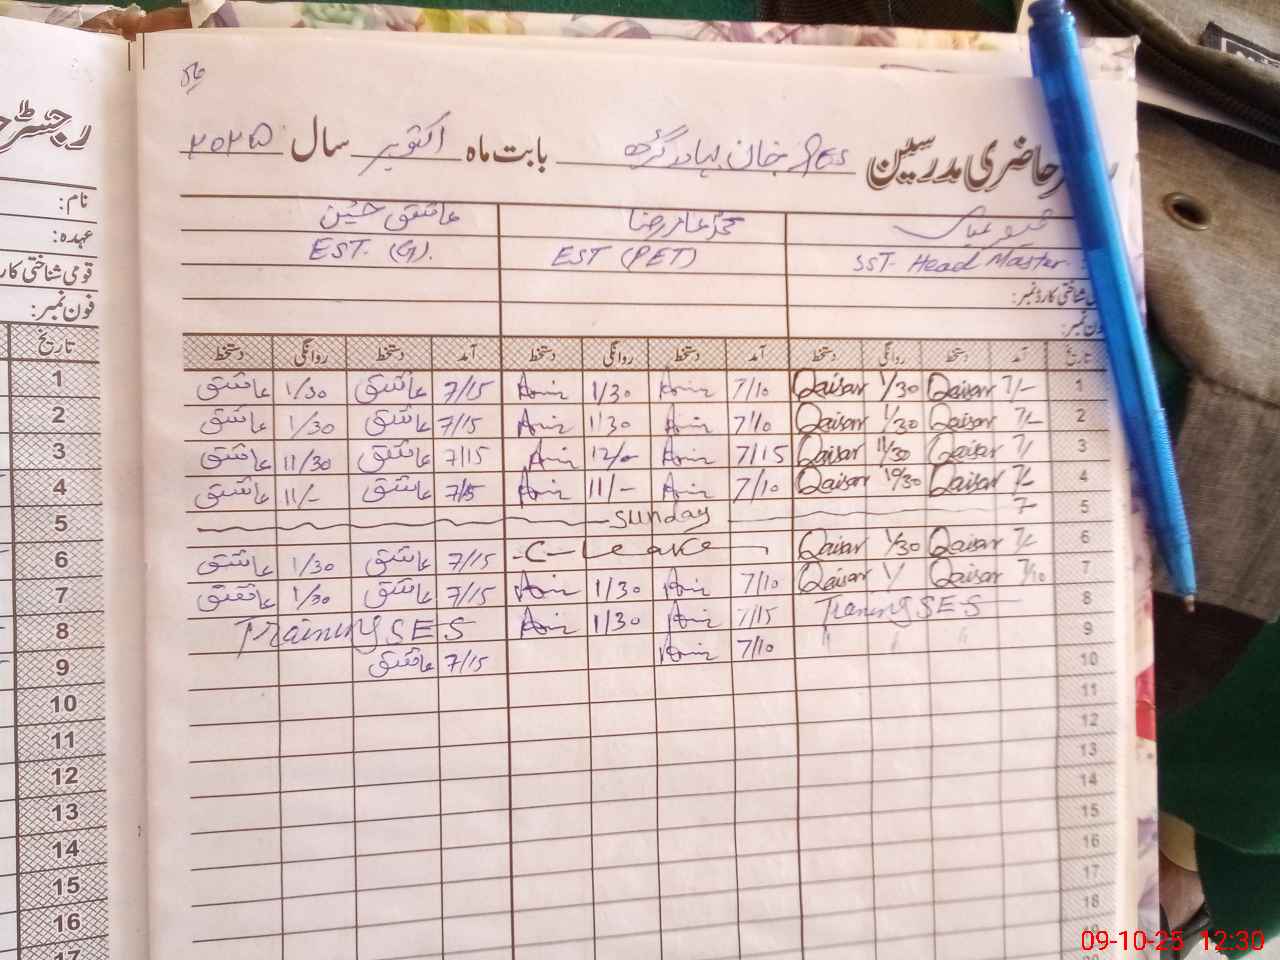 رجسٹر حاضری مدرسین GES خان بہادر گڑھ بابت ماہ اکتوبر سال ۲۰۲۵
قیصر عباس محمد عامر رضا عاشق حسین
SST. Head Master EST (PET) EST. (G).
شناختی کارڈ نمبر:
فون نمبر:
تاریخ آمد دستخط روانگی دستخط آمد دستخط روانگی دستخط آمد دستخط روانگی دستخط
1 7/- Qaisar 1/30 Qaisar 7/10 Amir 1/30 Amir 7/15 عاشق 1/30 عاشق
2 7/- Qaisar 1/30 Qaisar 7/10 Amir 1/30 Amir 7/15 عاشق 1/30 عاشق
3 7/ Qaisar 11/30 Qaisar 7/15 Amir 12/- Amir 7/15 عاشق 11/30 عاشق
4 7/- Qaisar 10/30 Qaisar 7/10 Amir 11/- Amir 7/15 عاشق 11/- عاشق
5 7- Sunday
6 7/- Qaisar 1/30 Qaisar C-Leave 7/15 عاشق 1/30 عاشق
7 7/10 Qaisar 1/ Qaisar 7/10 Amir 1/30 Amir 7/15 عاشق 1/30 عاشق
8 Traning SES 7/15 Amir 1/30 Amir Training SES
9 " " " 7/10 Amir 7/15 عاشق
10
11
12
13
14
15
16
17
18
رجسٹر
نام:
عہدہ:
قومی شناختی کارڈ
فون نمبر:
تاریخ
1
2
3
4
5
6
7
8
9
10
11
12
13
14
15
16
17
09-10-25 12:30